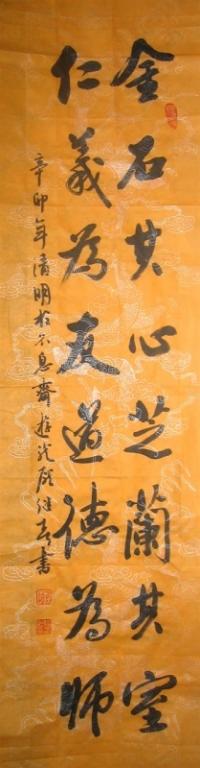 金石其心芝蘭其室
仁義為友道德為師
辛卯年清明於不息齋